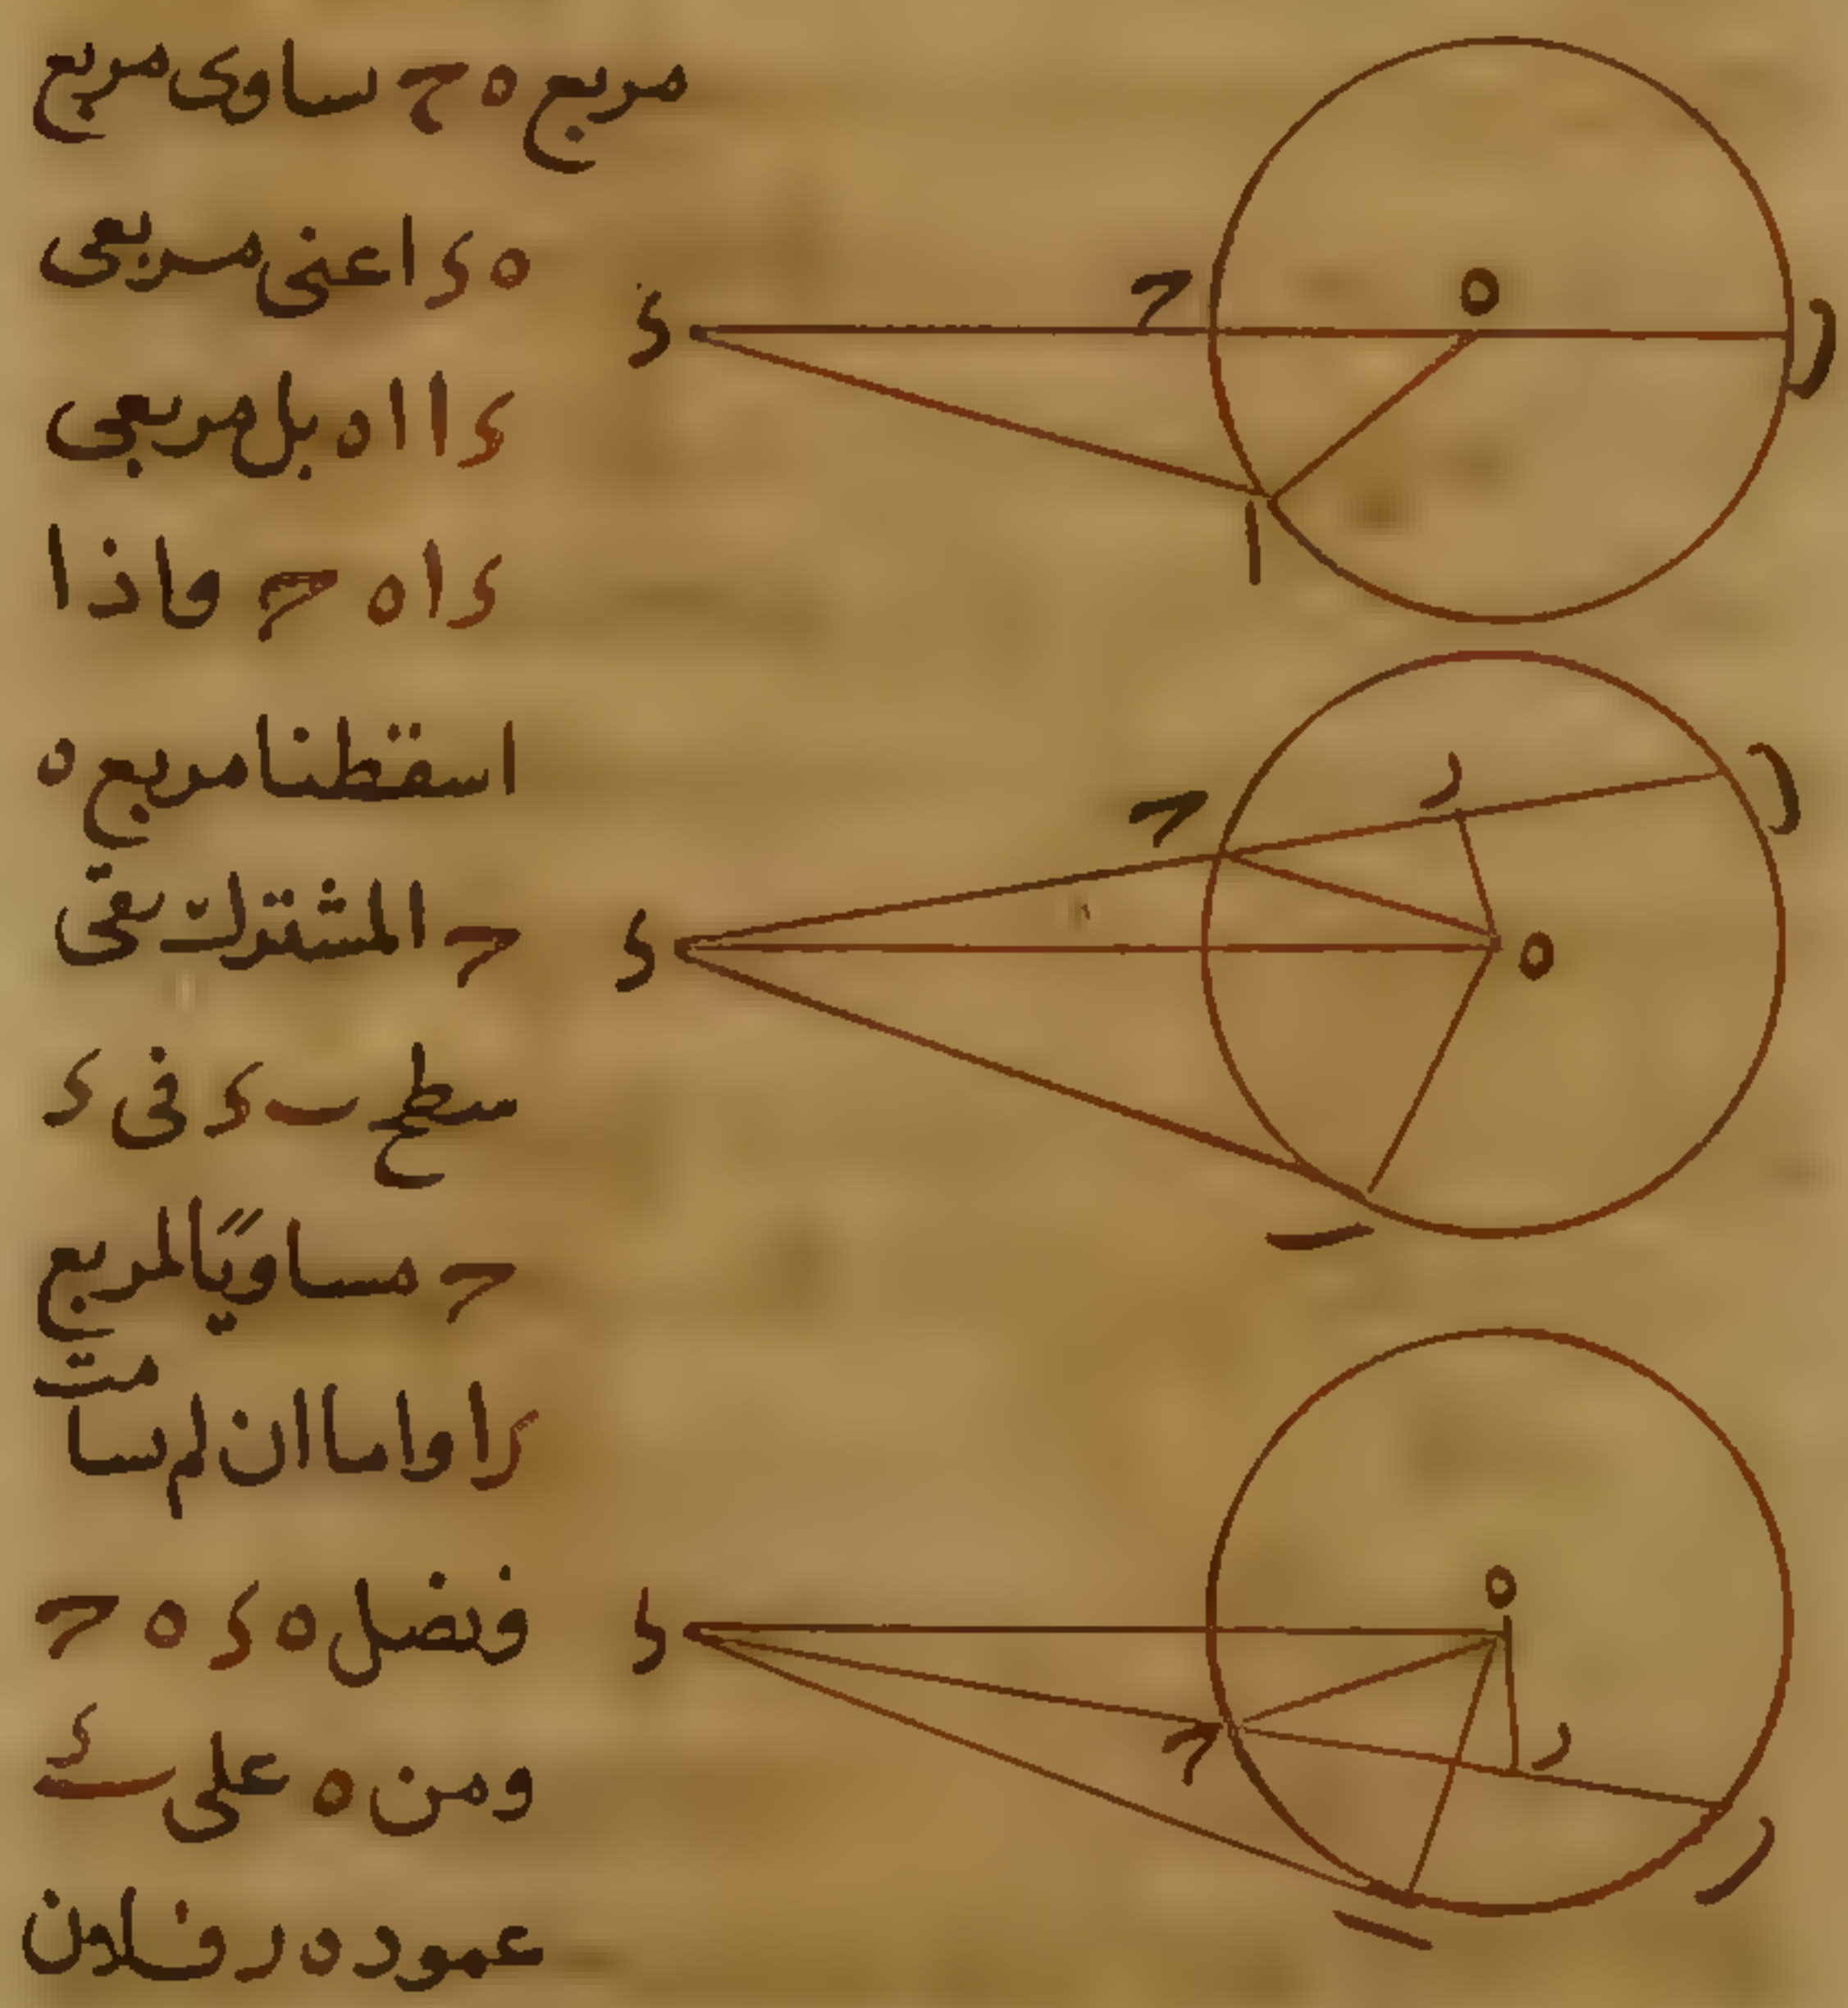 مربع ه ح ساوى مربع
ه د اعنى مربعى
د ا ا ه بل مربعى
د ا ه ح فاذا
اسقطنا مربع ه
ح المشترك بقى
سطح ب د فى د
ح مساويًا لمربع
د ا واما ان لم سا
مت
فنصل ه د ه ح
ومن ه على ب د
عمود ه ر فلان
ح
ه
ب
د
ا
ح
ر
ب
د
ه
ا
ه
د
ح
ر
ب
ا